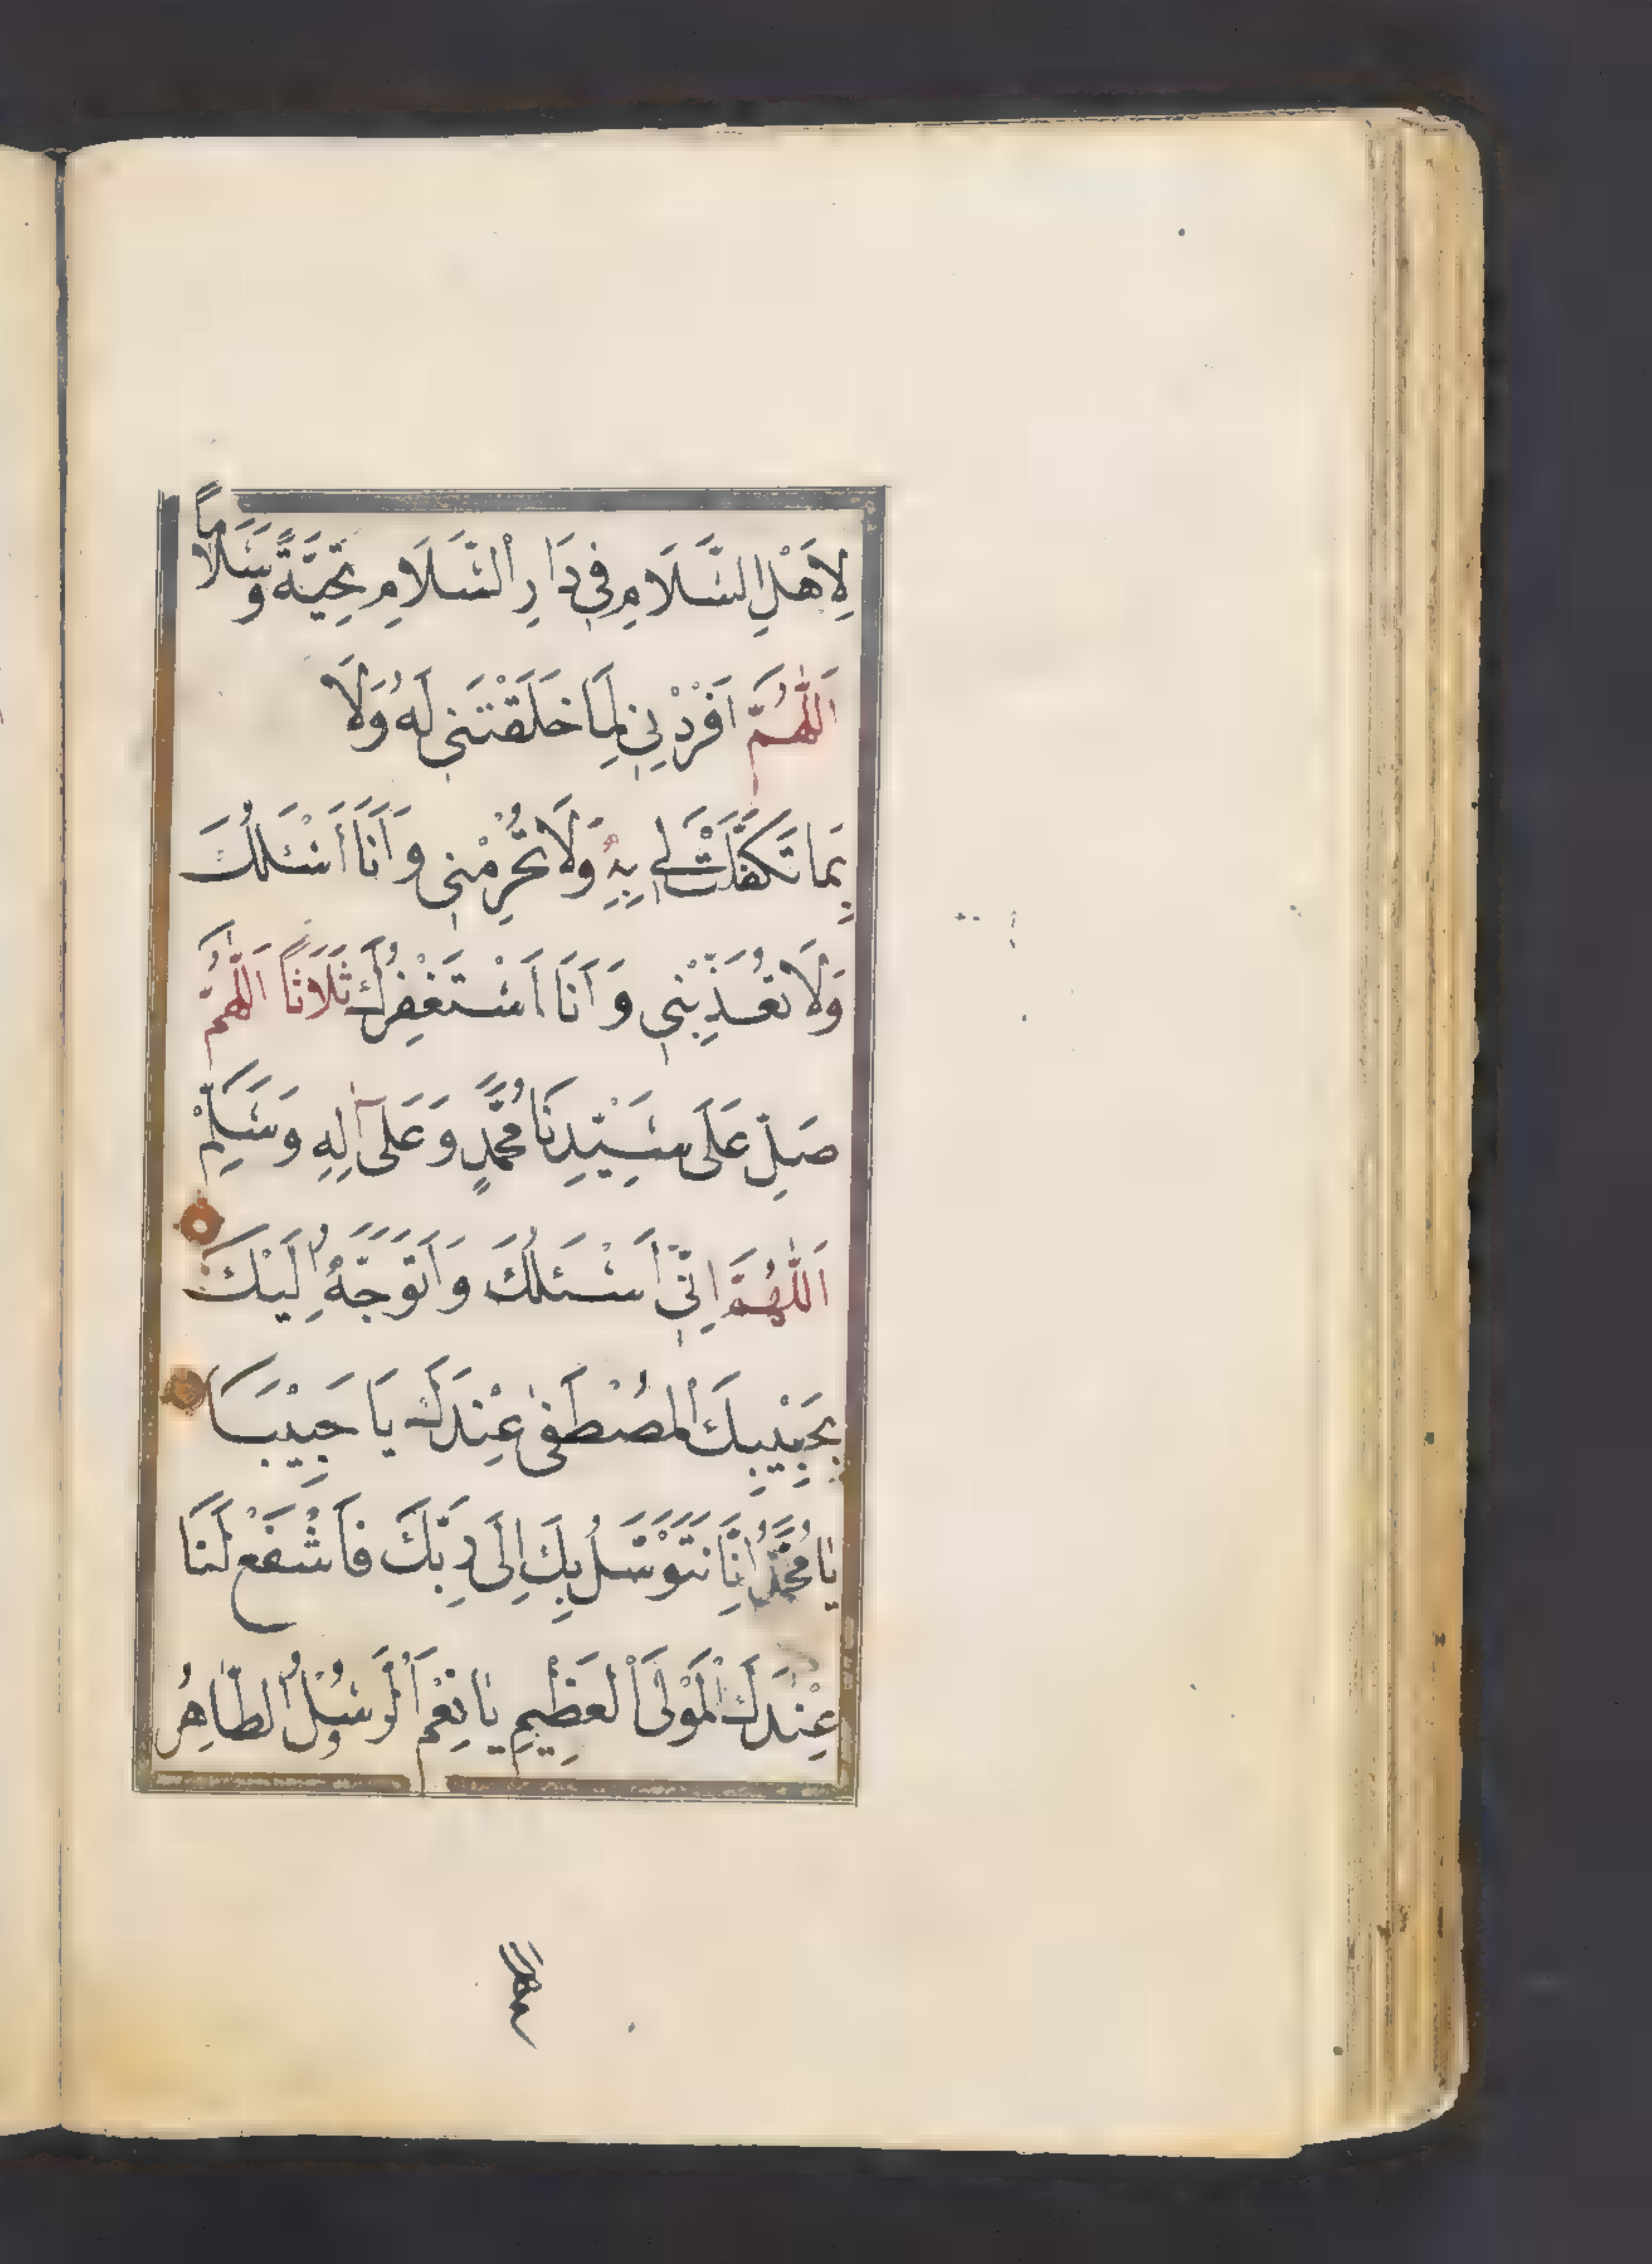 لِاَهْلِ السَّلَامِ فِي دَارِ السَّلَامِ تَحِيَّةً وَسَلَامًا
اَللّٰهُمَّ اَفْرِدْنِي لِمَا خَلَقْتَنِي لَهُ وَلَا
بِمَا تَكَفَّلْتَ لِي بِهِ وَلَا تَحْرِمْنِي وَاَنَا اَسْئَلُكَ
وَلَا تُعَذِّبْنِي وَاَنَا اَسْتَغْفِرُكَ ثَلَاثًا اَللّٰهُمَّ
صَلِّ عَلَى سَيِّدِنَا مُحَمَّدٍ وَعَلَى آلِهِ وَسَلِّمْ
اَللّٰهُمَّ اِنِّي اَسْئَلُكَ وَاَتَوَجَّهُ اِلَيْكَ
بِحَبِيْبِكَ الْمُصْطَفٰى عِنْدَكَ يَا حَبِيْبَنَا
يَا مُحَمَّدُ اِنَّا نَتَوَسَّلُ بِكَ اِلَى رَبِّكَ فَاشْفَعْ لَنَا
عِنْدَ الْمَوْلَى الْعَظِيْمِ يَا نِعْمَ الرَّسُوْلُ الطَّاهِرُ